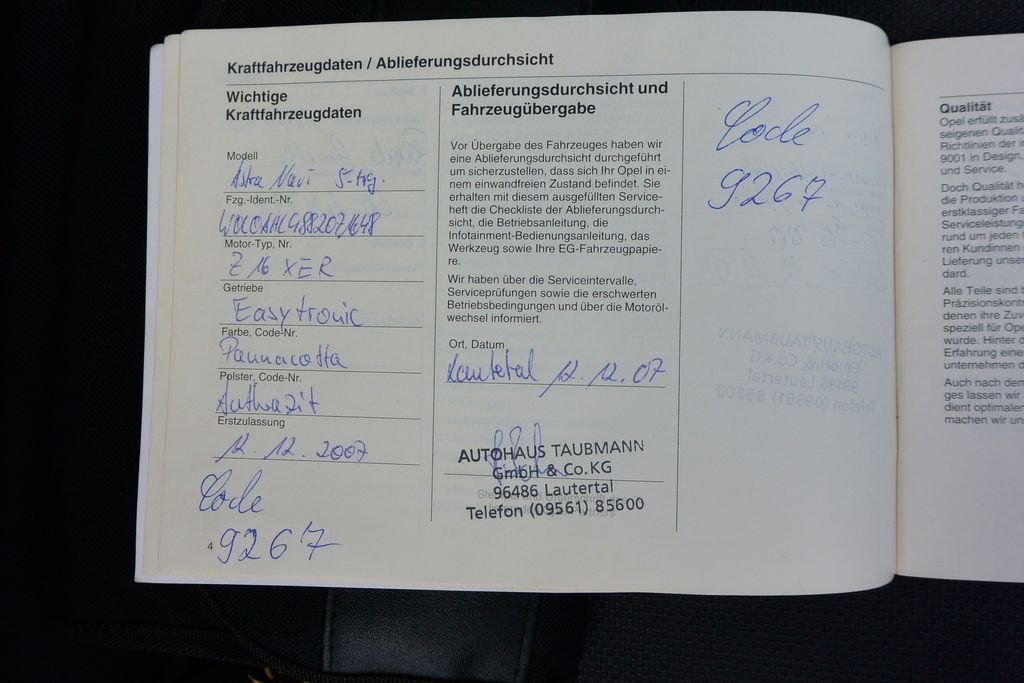 Kraftfahrzeugdaten / Ablieferungsdurchsicht
Wichtige
Kraftfahrzeugdaten
Modell
Astra Navi 5-trg.
Fzg.-Ident.-Nr.
Motor-Typ, Nr.
Z 16 XER
Getriebe
Easytronic
Farbe, Code-Nr.
Pannacotta
Polster, Code-Nr.
Anthrazit
Erstzulassung
12.12.2007
Code
9267
4
Ablieferungsdurchsicht und
Fahrzeugübergabe
Vor Übergabe des Fahrzeuges haben wir
eine Ablieferungsdurchsicht durchgeführt
um sicherzustellen, dass sich Ihr Opel in ei-
nem einwandfreien Zustand befindet. Sie
erhalten mit diesem ausgefüllten Service-
heft die Checkliste der Ablieferungsdurch-
sicht, die Betriebsanleitung, die
Infotainment-Bedienungsanleitung, das
Werkzeug sowie Ihre EG-Fahrzeugpapie-
re.
Wir haben über die Serviceintervalle,
Serviceprüfungen sowie die erschwerten
Betriebsbedingungen und über die Motoröl-
wechsel informiert.
Ort, Datum
Lautertal 12.12.07
AUTOHAUS TAUBMANN
GmbH & Co.KG
96486 Lautertal
Telefon (09561) 85600
Code
9267
Qualität
Opel erfüllt
seigenen
Richtlinien der
9001 in Design,
und Service.
Doch Qualität
die Produktion
erstklassiger
Serviceleistung
rund um jeden
ren Kundinnen
Lieferung
dard.
Alle Teile sind
denen ihre
speziell für
wurde. Hinter
Erfahrung
unternehmen
Auch nach dem
ges lassen wir
dient optimaler
machen wir